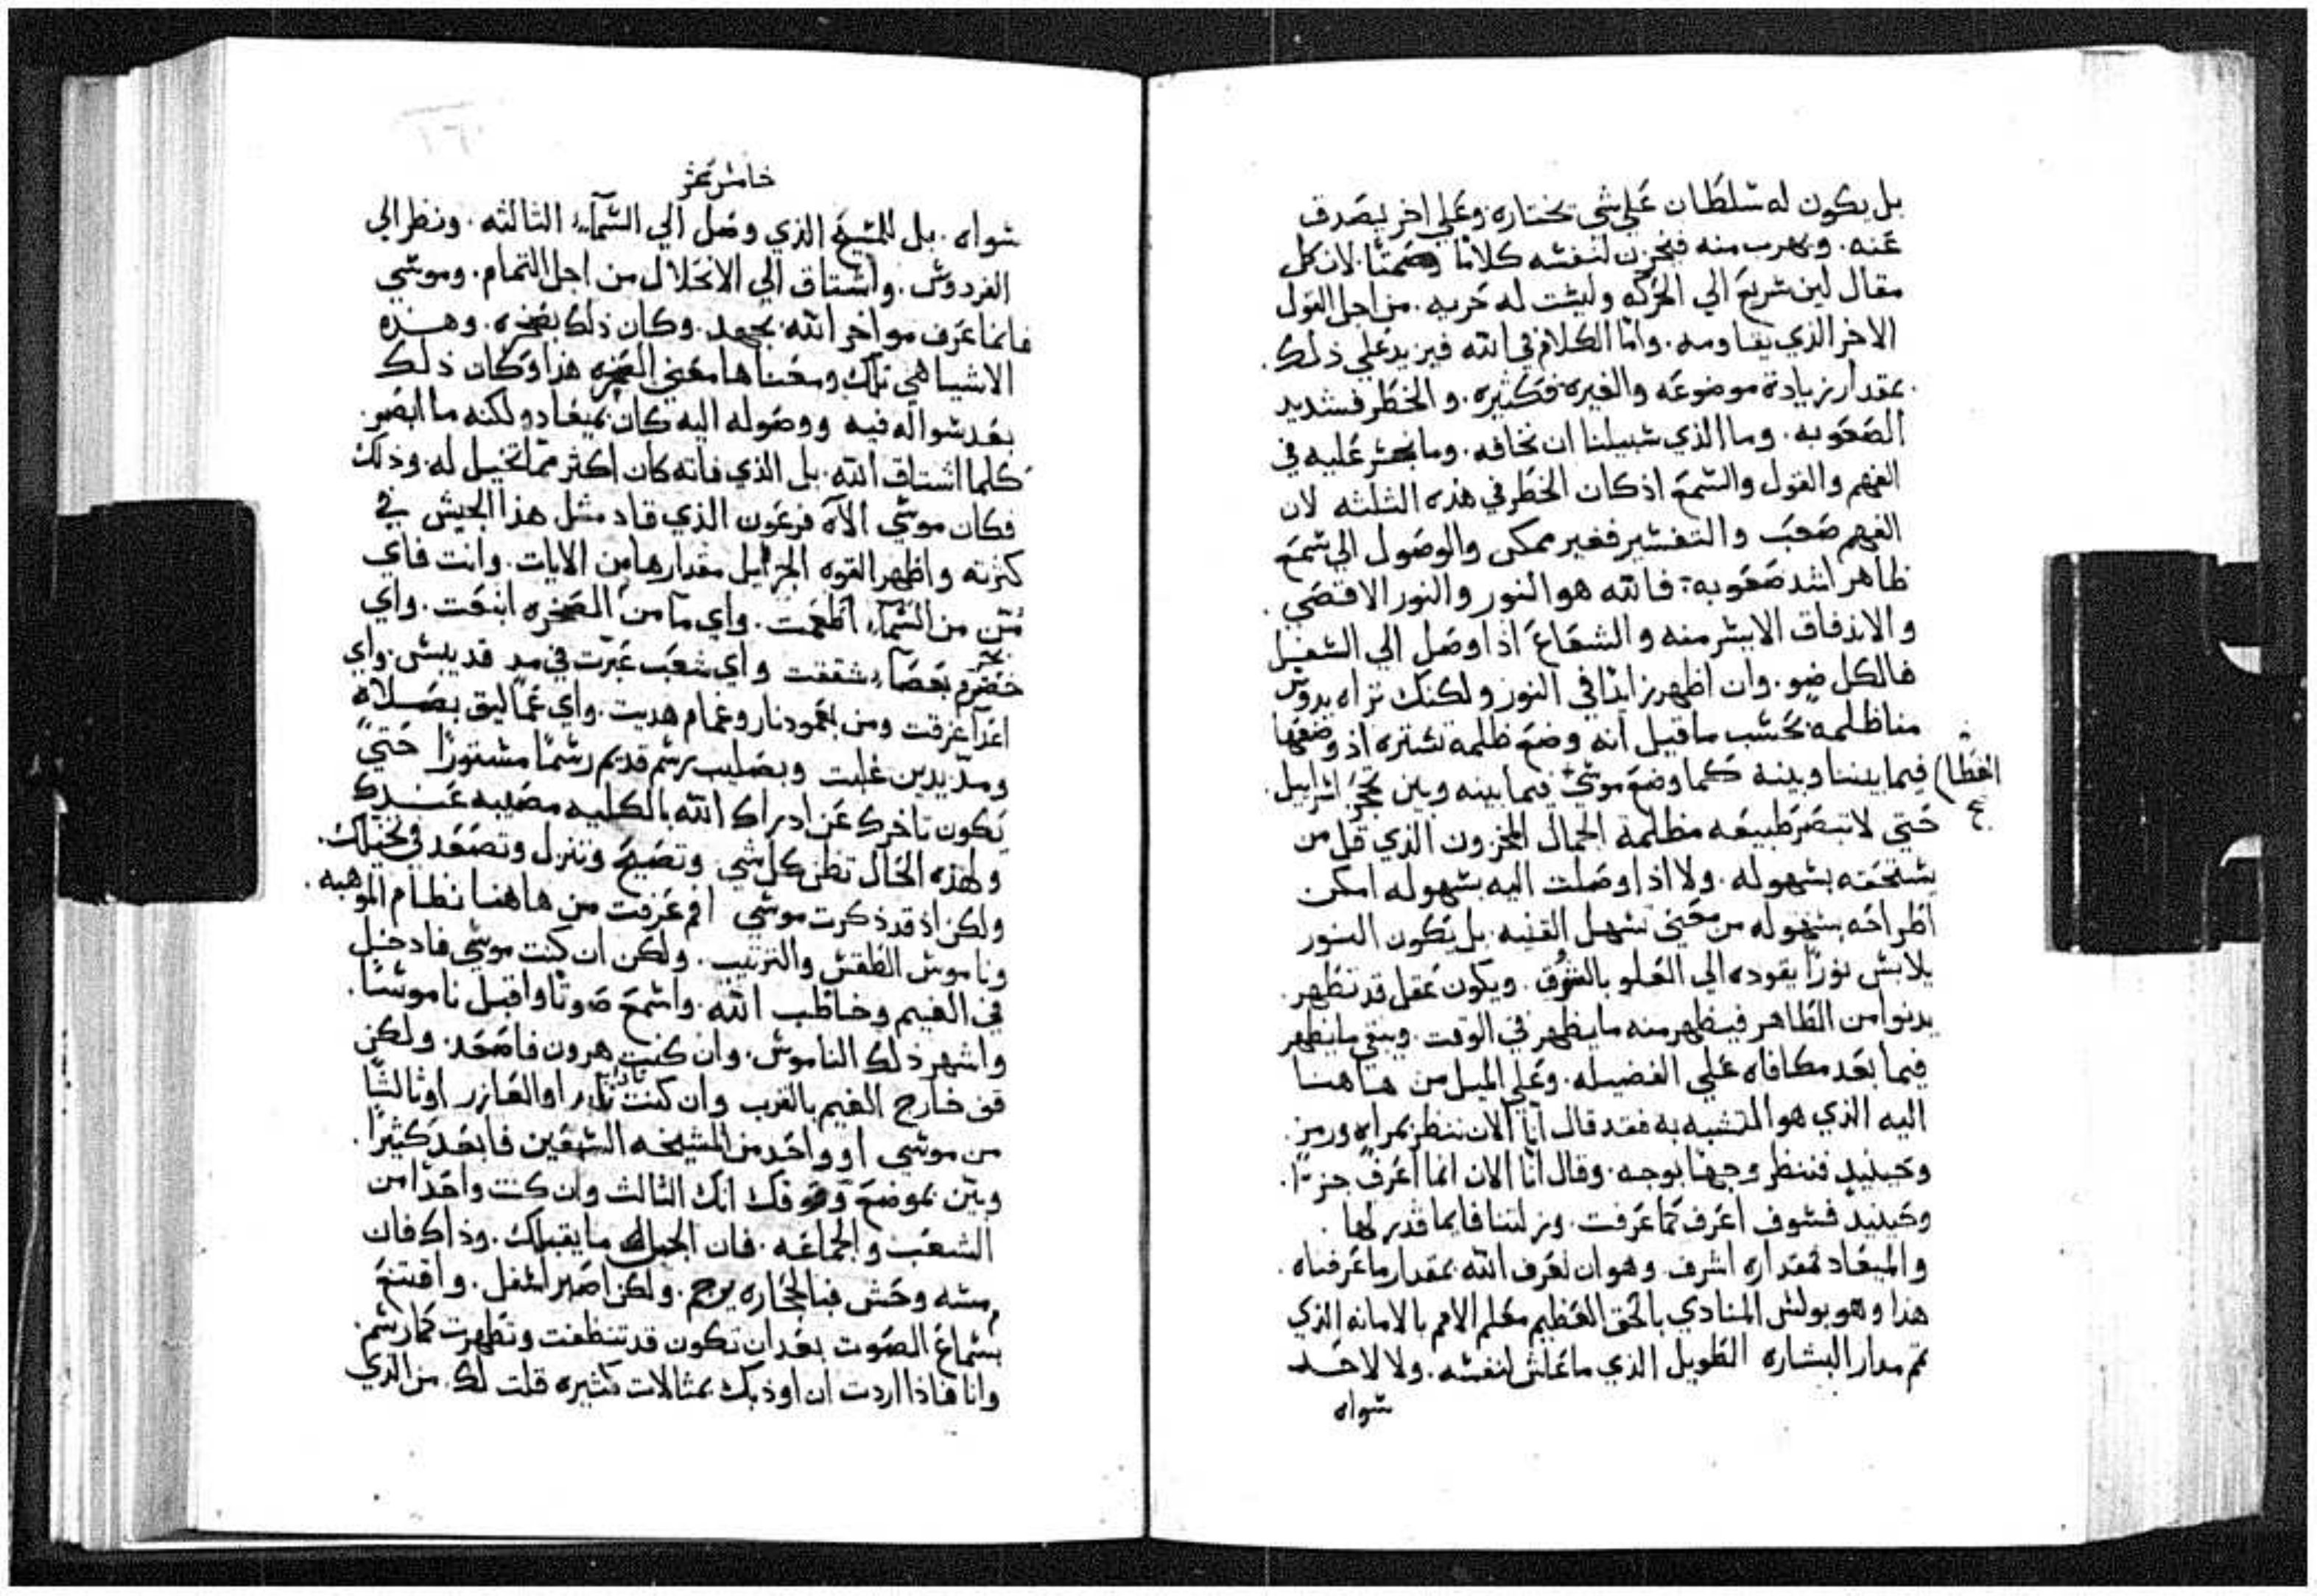 بل يكون له سلطان علي شي يختاره وعلي اخر ليصدق
عنه. ويهرب منه فيخزن لنفسه كلاما وصمتا. لان كل
مقال لين سريع الي الحركه وليست له حريه. من اجل القول
الاخر الذي يقاومه. واما الكلام في الله فيزيد علي ذلك.
بمقدار زيادة موضوعه والغيره فكثيره. والخطر فشديد
الصعوبه. وما الذي سبيلنا ان نخافه. وما نجسر عليه في
الفهم والقول والسمع اذ كان الخطر في هذه الثلثه لان
الفهم صعب والتفسير فغير ممكن والوصول الي سمع
ظاهر اشد صعوبه: فالله هو النور والنور الاقصي.
والاندفاق الايسر منه والشعاع اذا وصل الي السفل
فالكل ضو. وان اظهر زايدا في النور ولكنك تراه يدوس
مناظلمه بحسب ما قيل انه وضع ظلمه تستره اذ وضعها
فيما بيننا وبينه كما وضع موسي فيما بينه وبين تحجر اسراييل.
الغطا
ع
حتي لا تبصر طبيعه مظلمة الجمال المخزون الذي قل من
يستحقه بسهوله. ولا اذا وصلت اليه بسهوله امكن
اطراحه بسهوله من معني سهل القنيه. بل يكون النور
يلابس نورا يقوده الي العلو بالشوق. ويكون عقل قد تطهر.
يدنوا من الطاهر فيظهر منه ما يظهر في الوقت. ويبقي ما يظهر
فيما بعد مكافاه علي الفضيله. وعلي الميل من هاهنا
اليه الذي هو المتشبه به فقد قال انا الان ننظر بمراه ورمز.
وحينيذ فننظر وجها بوجه. وقال انا الان انما اعرف جزا.
وحينيذ فسوف اعرف كما عرفت. ونزلتنا فايما قدرلها.
والميعاد فمقداره اشرف. وهو ان نعرف الله بمقدار ما عرفناه.
هذا وهو بولس المنادي بالحق العظيم معلم الامم بالامانه الذي
تم مدار البشاره الطويل الذي ما عاش لنفسه. ولا لاحد
سواه
خامس عشر
سواه. بل للمسيح الذي وصل الي السمآء الثالثه. ونظر الي
الفردوس. واشتاق الي الانحلال من اجل التمام. وموسي
فانما عرف مواخر الله بجهد. وكان ذلك بصخره. وهذه
الاشيا هي تلك ومعناها معني الصخره هذا وكان ذلك
بعد سواله فيه ووصوله اليه كان بميعاد ولكنه ما ابصر.
كلما اشتاق الله. بل الذي فاته كان اكثر مما تخيل له. وذلك
فكان موسي الآه فرعون الذي قاد مثل هذا الجيش في
كثرته واظهر القوه الجزيل مقدارها من الايات. وانت فاي
من من السمآء اطعمت. واي مآ من الصخره انبعت. واي
بحر بعصآء شققت واي شعب عبرت في مد قد يبس. واي
اعدآ غرقت ومن بعمود نار وغمام هديت. واي عماليق بصلاه
ومد يدين غلبت وبصليب برسم قديم رسما مستورا حتي
يكون تاخرك عن ادراك الله بالكليه مصيبه عندك
ولهذه الحال تظن كل شي وتصيح وتنزل وتصعد في تخيلك.
ولكن اذ قد ذكرت موسي افم عرفت من هاهنا نظام الموهبه.
وناموس الطقس والترتيب. ولكن ان كنت موسي فادخل
في الغيم وخاطب الله. واسمع صوتا واقبل ناموسا.
واشهر ذلك الناموس. وان كنت هرون فاصعد. ولكن
قف خارج الغيم بالقرب وان كنت ثامر او العازر او ثالثا
من موسي او واحد من المشيخه السبعين فابعد كثيرا.
وبين بموضع وقوفك انك الثالث وان كنت واحدا من
الشعب والجماعه. فان الجبل ما يقبلك. وذاك فان
مسه وحش فبالحجاره يرجم. ولكن اصبر اسفل. واقتنع
بسماع الصوت بعد ان تكون قد تنظفت وتطهرت كما رسم.
وانا فاذا اردت ان اوذبك بمثالات كثيره قلت لك. من الذي